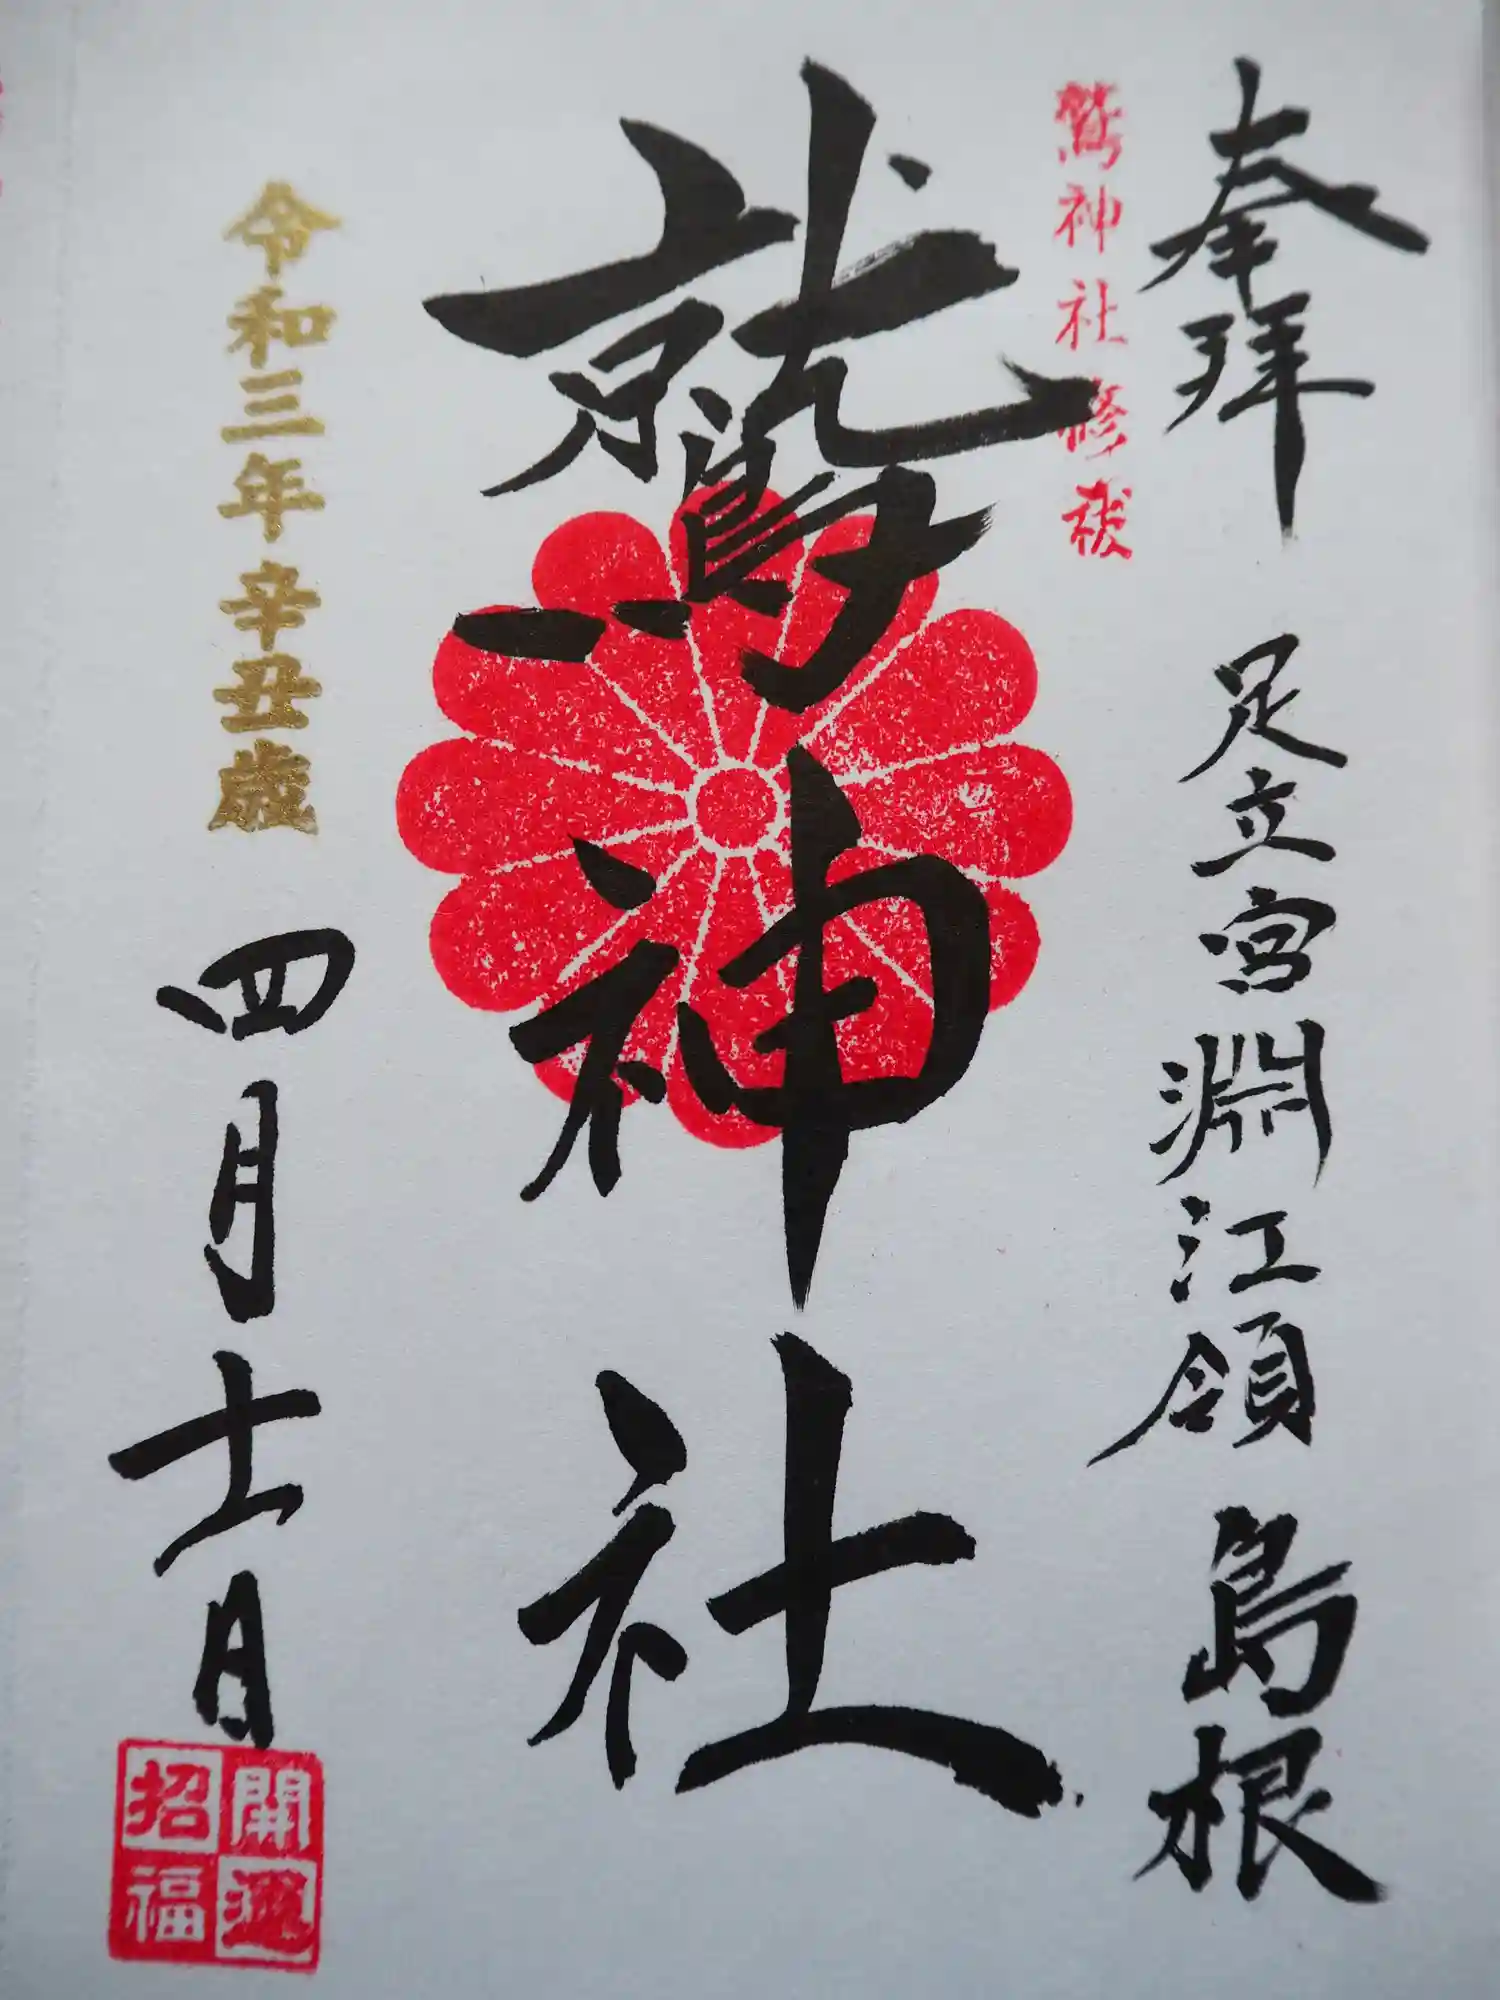 奉拝 足立宮淵江領 島根
鷲神社修祓
鷲神社
令和三年辛丑歳 四月十一日
開運
招福